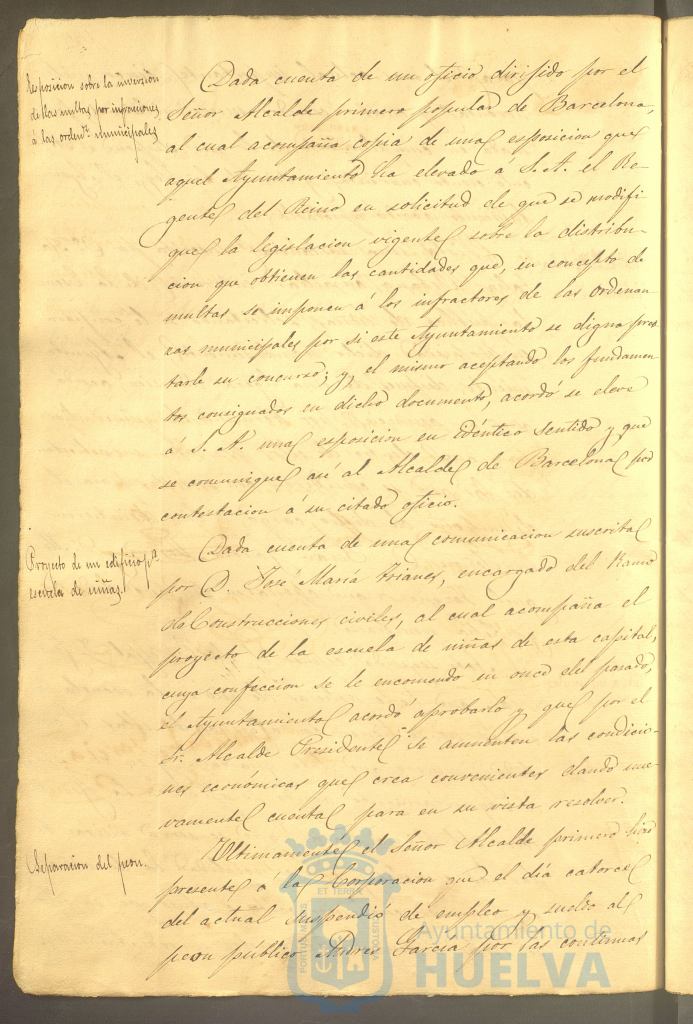 Esposicion sobre la inversion
de las multas por infracciones
á las orden.s municipales
Dada cuenta de un oficio dirijido por el
Señor Alcalde primero popular de Barcelona,
al cual acompaña copia de una esposicion que
aquel Ayuntamiento ha elevado á S. A. el Re-
gente del Reino en solicitud de que se modifi
que la legislacion vigente sobre la distribu-
cion que obtienen las cantidades que, en concepto de
multas se imponen á los infractores de las ordenan
zas municipales por si este Ayuntamiento se digna pres
tarle su concurso; y, el mismo aceptando los fundamen
tos consignados en dicho documento, acordó se eleve
á S. A. una esposicion en idéntico sentido y que
se comunique asi al Alcalde de Barcelona por
contestacion á su citado oficio.
Proyecto de un edificio p.a
escuela de niñas.
Dada cuenta de una comunicacion suscrita
por D. José María Trianes, encargado del Ramo
de Construcciones civiles, al cual acompaña el
proyecto de la escuela de niñas de esta capital,
cuya confeccion se le encomendó en once del pasado,
el Ayuntamiento acordó aprobarlo y que por el
Sr. Alcalde Presidente se aumenten las condicio-
nes económicas que crea convenientes dando nue-
vamente cuenta para en su vista resolver.
Separacion del peon.
Ultimamente el Señor Alcalde primero hizo
presente á la Corporacion que el dia catorce
del actual suspendió de empleo y sueldo al
peon público Andres Garcia por las continuas
PORTUS MARIS
ET TERRÆ
CUSTODIA
Ayuntamiento de
HUELVA